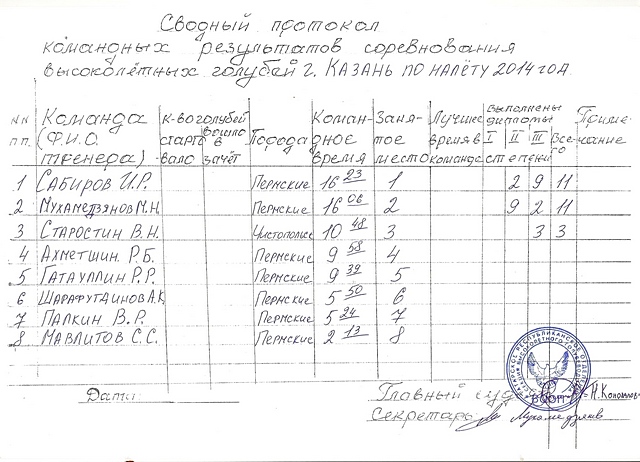 Сводный протокол
командных результатов соревнования
высоколётных голубей г. Казань по налёту 2014 год
NN п.п. Команда (Ф.И.О. тренера) к-во голубей стартовало вошло в зачёт Порода Командное время Занятое место Лучшее время в команде выполнены дипломы I II III Всего степени Примечание
1 Сабиров И.Р. Пермские 16 23 1 2 9 11
2 Мухамедзянов М.Н. Пермские 16 06 2 9 2 11
3 Старостин В.Н. Чистополис 10 48 3 3 3
4 Ахметшин Р.Б. Пермские 9 58 4
5 Гатауллин Р.Р. Пермские 9 39 5
6 Шарафутдинов А.К. Пермские 5 50 6
7 Палкин В.Р. Пермские 5 24 7
8 Мавлитов С.С. Пермские 2 13 8
Дата: Главный суд Н. Коновалов
Секретарь Мухамедзянов